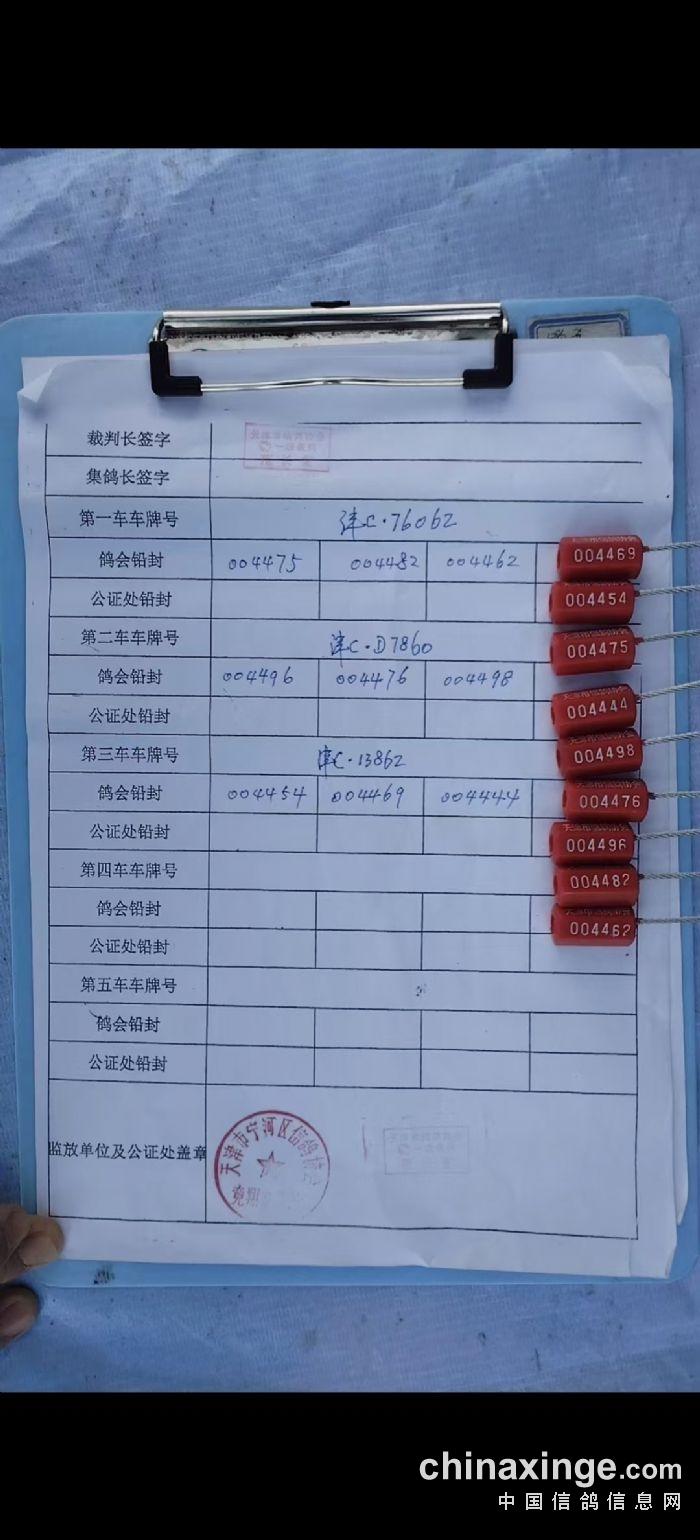 裁判长签字
集鸽长签字
第一车车牌号 津C·76062
鸽会铅封 004475 004482 004462
公证处铅封
第二车车牌号 津C·D7860
鸽会铅封 004496 004476 004498
公证处铅封
第三车车牌号 津C·13862
鸽会铅封 004454 004469 004444
公证处铅封
第四车车牌号
鸽会铅封
公证处铅封
第五车车牌号
鸽会铅封
公证处铅封
监放单位及公证处盖章
天津市宁河区信鸽协会
竞翔
004469
004454
004475
004444
004498
004476
004496
004482
004462
chinaxinge.com
中国信鸽信息网